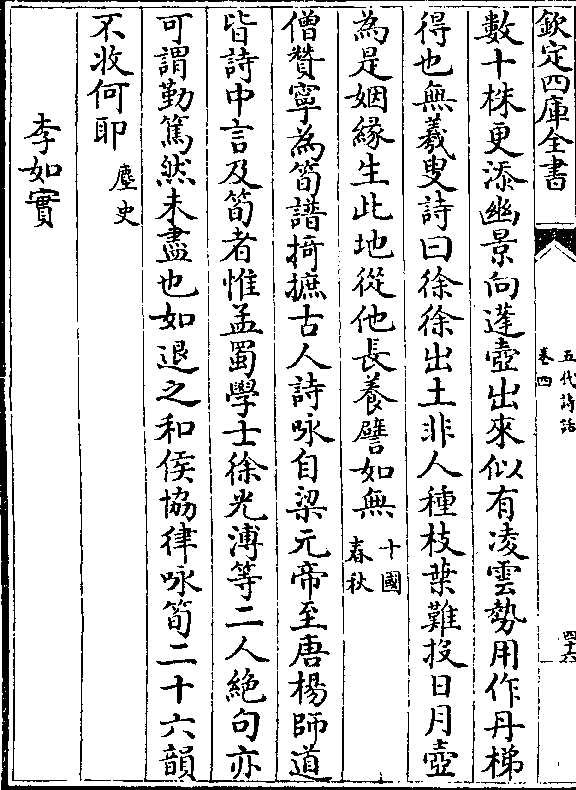 欽定四庫全書
五代詩話
卷四
四十六
數十株更添幽景向蓬壺出來似有凌雲勢用作丹梯
得也無羲叟詩曰徐徐出土非人種枝葉難投日月壺
為是姻緣生此地從他長養譬如無十國春秋
僧贊寧為筍譜掎摭古人詩咏自梁元帝至唐楊師道
皆詩中言及筍者惟孟蜀學士徐光溥等二人絶句亦
可謂勤篤然未盡也如退之和侯協律咏筍二十六韻
不收何耶麈史
李如實